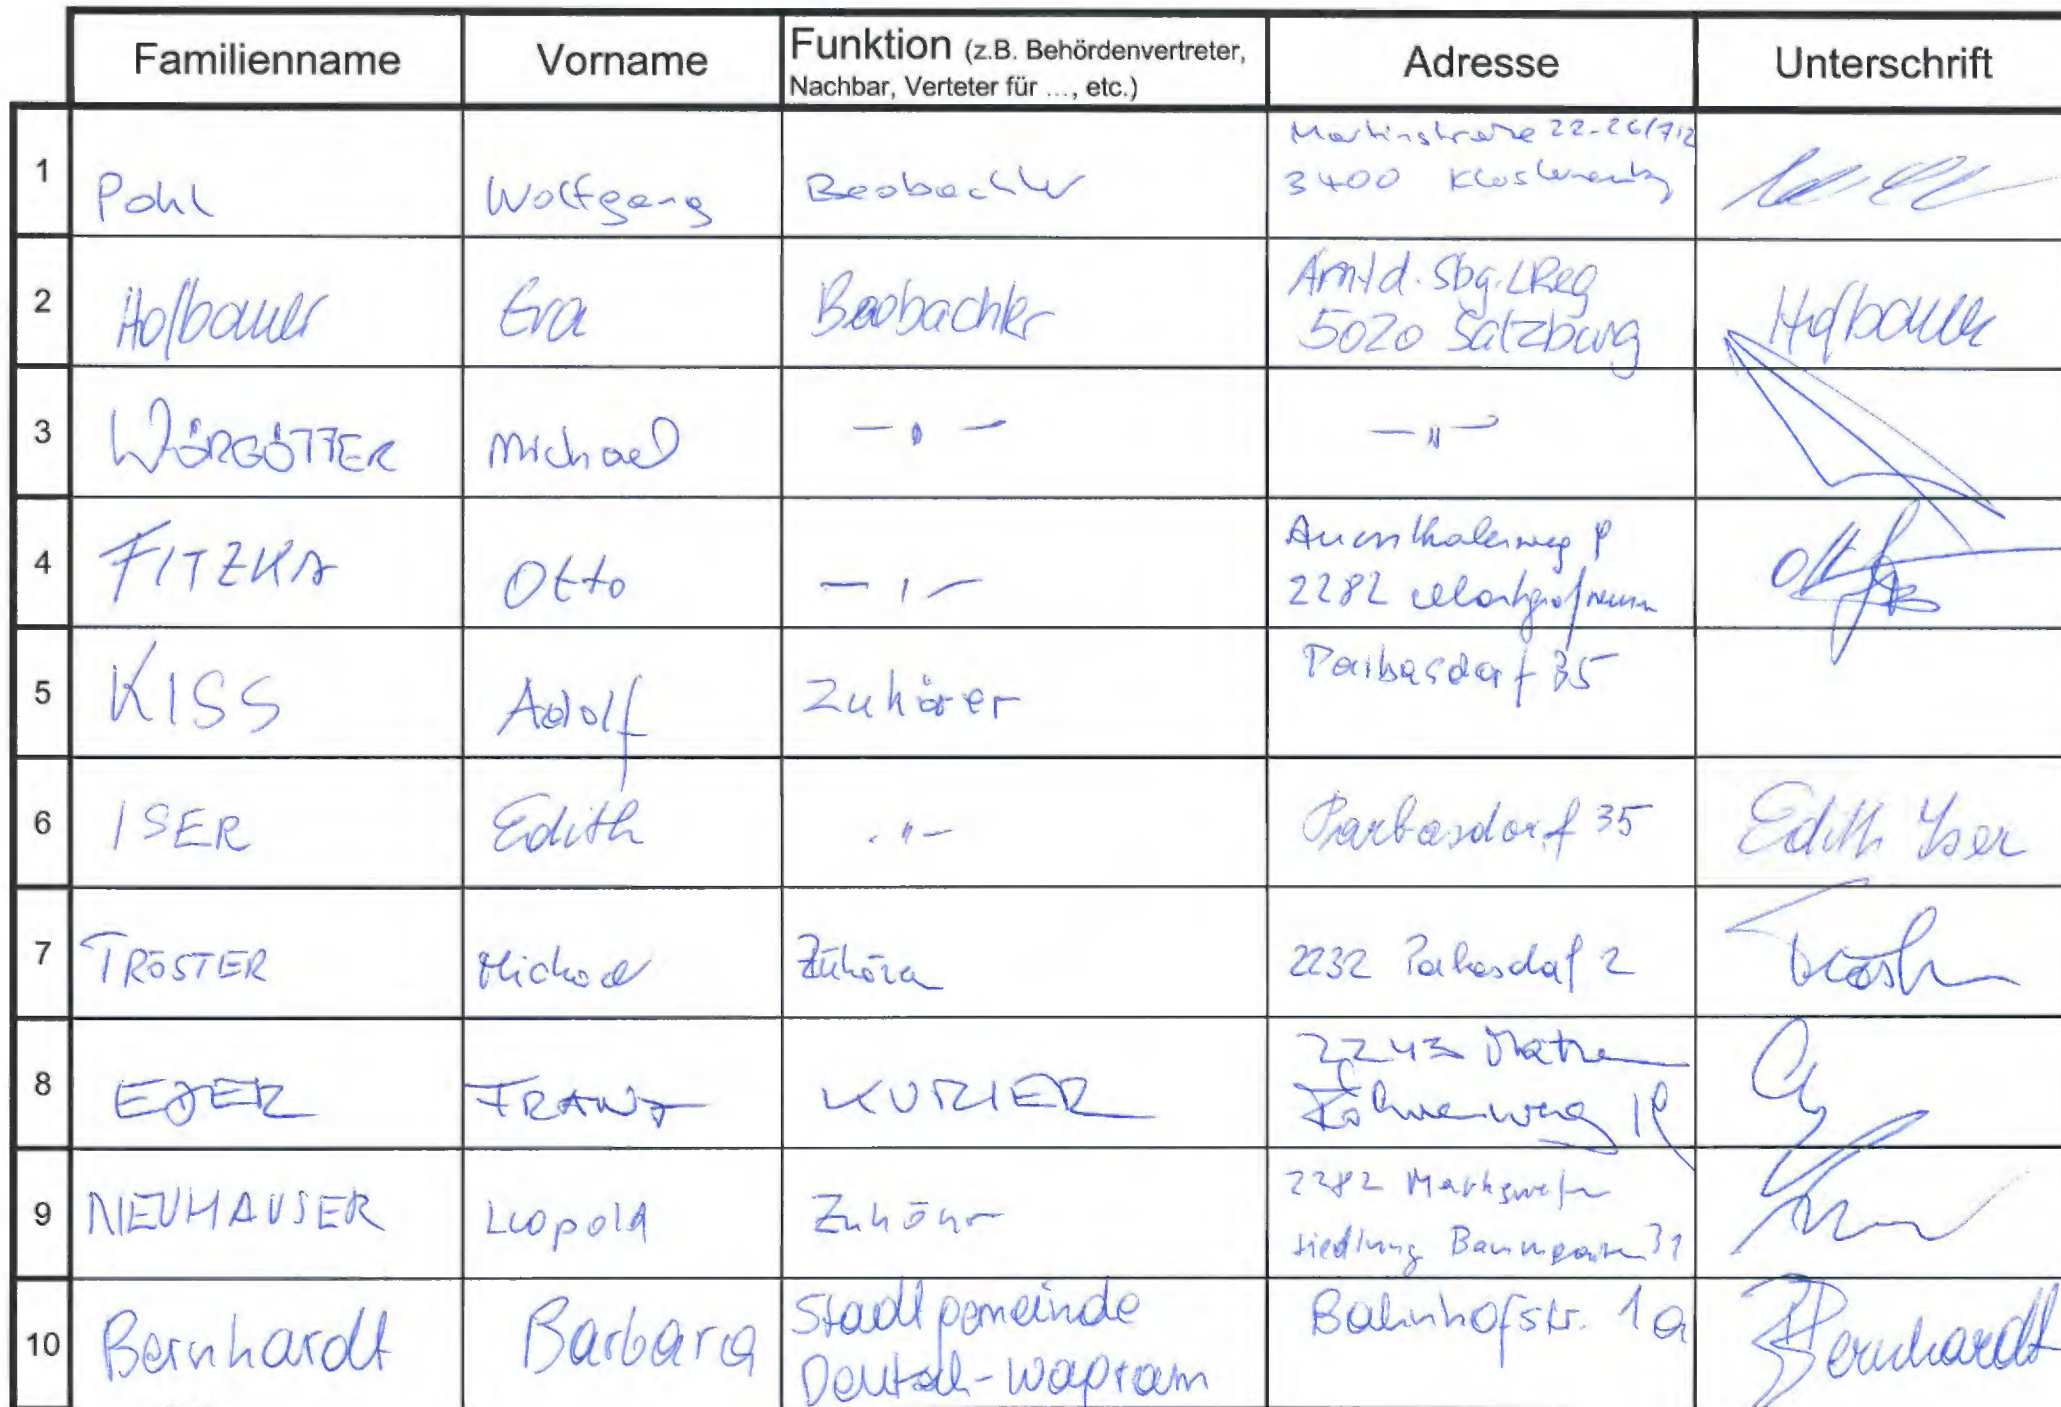 Familienname Vorname Funktion (z.B. Behördenvertreter, Nachbar, Verteter für ..., etc.) Adresse Unterschrift
1 Pohl Wolfgang Beobachter Martinstraße 22-26/7/2
3400 Klosterneuburg
2 Hofbauer Eva Beobachter Amt d. Sbg. LReg
5020 Salzburg Hofbauer
3 WÖRGÖTTER Michael — " — — " —
4 FITZKA Otto — " — Auersthalerweg
2282 Markgrafneusiedl
5 KISS Adolf Zuhörer Parbasdorf 35
6 ISER Edith - " - Parbasdorf 35 Edith Iser
7 TRÖSTER Michael Zuhörer 2232 Parbasdorf 2 Tröster
8 FRANZ KURIER 2243 Matzen
9 NEUHAUSER Leopold Zuhörer 2282 Markgrafneusiedl
siedlung Baumgarten 31
10 Bernhardt Barbara Stadtgemeinde
Deutsch-Wagram Bahnhofstr. 1a Bernhardt